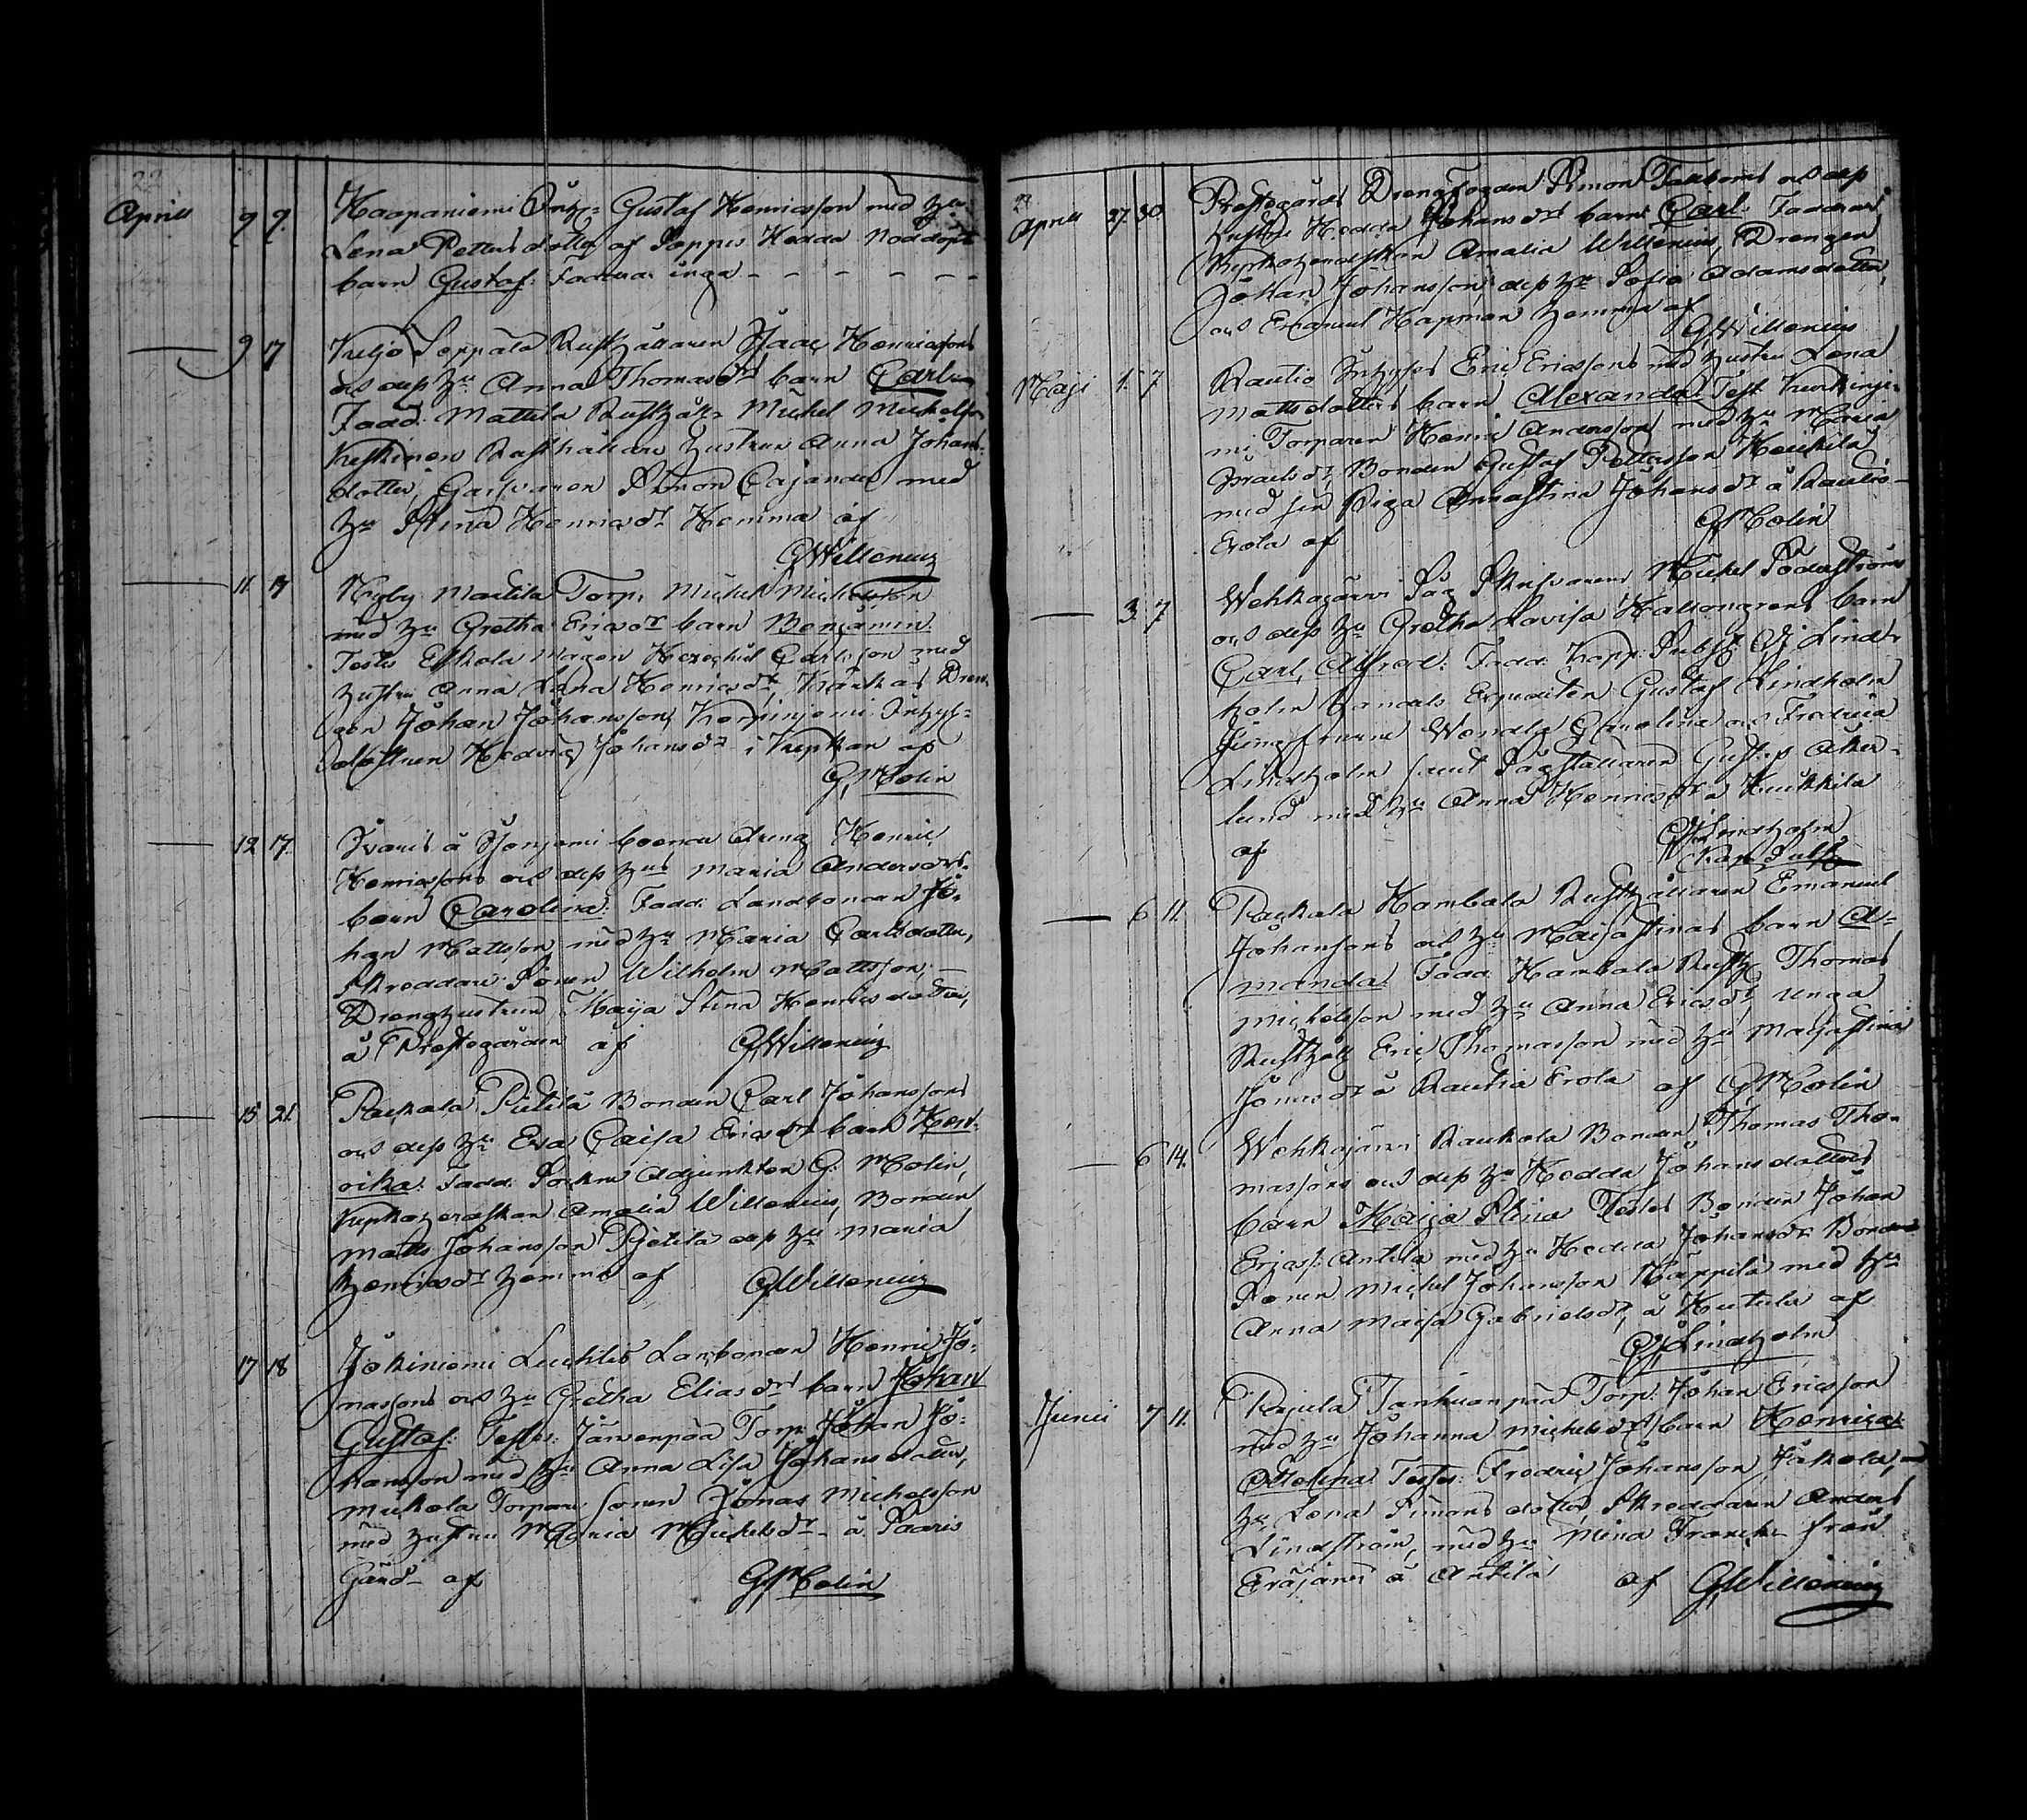 22
Aprill 9 9. Haapaniemi Inh:s Gustaf Henricsson med hu
Lena Pettersdotter af Soppis Hedda Noddöpt
barn Gustaf: Faddrar inga - - - - - -
9 17 Kuljo Seppälä Rusthållaren Isaac Henricssons
och dess hu Anna Thomasdrs barn Carl
Fadd: Mattila Rusth: Michel Michelss:
Keskinen Rusthållare hustrun Anna Johans
dotter, Garfvaren Simon Cajander med
hu Stina Henricsdr Hemma af
GWillenius
11. 17 Nyby Mattila Torp: Michel Michelsson
med hu Gretha Ericsdr barn Benjamin
Testes Eskola mågen Hezechiel Carlsson med
hustru Anna Lena Henricsdr, Dren-
gen Johan Johansson, Inhys-
hustrun Hedvig Johansdr i Kyrkan af
G, Molin
12 17. å boende dreng Henric
Henricssons och dess hus Maria Andersdrs
barn Carolina: Fadd: Landbonden Jo-
han Mattsson med hu Maria Carlsdotter,
Skreddare Sonen Wilhelm Mattsson, —
Dreng hustrun Maja Stina Henricsdotter,
å Prestegården af GWillenius
15 21. Raekala Pietilä Bonden Carl Johanssons
och dess hu Eva Caisa Ericsdrs barn Hen-
rika: Fadd: Sockne Adjunkten G: Molin,
Kyrkoherdskan Amalia Willenius, Bonden
Matts Johansson Pietilä dess hu Maria
Henricsdr hemma af GWillenius
17 18 Jokiniemi Landbonden Henric Jo-
nassons och hu Gretha Eliasdrs barn Johan
Gustaf: Testes: Järvenpää Torp: Johan Jo-
hansson med hu Anna Lisa Johansdotter,
Torpare sonen Jonas Michelsson
med hustru Maria Michelsdr å Saaris
Gård af G, Molin
22
Aprill 27. 30. Prestegårds Drengfogden Simon och dess
hustru Hedda Johansdrs barn Carl Faddrar
Kyrkoherdskan Amalia Willenius, Drengen
Johan Johansson, dess hu Sofia Adamsdotter,
och Emanuel Hapman hemma af
GWillenius
Maji 1. 7 Rautio Inhyses Eric Ericssons med hustru Lena
Mattsdotters barn Alexander Test:
mi Torparen Henric Andersson med hu Maria
Israelsdr, Bonden Gustaf Pettersson Heikkilä
med sin Piga Annastina Johansdr å Rautio
Erola af G, Molin
3. 7 Wehkajärvi Såg Skrifvarens Michel Söderströms
och dess hu Gretha Lovisa Hallongrens barn
Carl Alfred: Fadd: Kapp: Subst: Lind-
holm handels Expediten Gustaf Lindholm
Jungfrurne Wendla Carolina och Fredrica
Lindholm samt Sågställaren Gustaf Åker-
lund med hu Anna Henricsdr å Kuckkila
af Lindholm
Kap: Subst
6 11. Raekala Hambala Rusthållaren Emanuel
Johanssons och hu Maijastinas barn A-
manda: Fadd: Hambala Rusth: Thomas
Michelsson med hu Anna Ericsdr, unga
Rusthåll: Eric Thomasson med hu Majastina
Jonasdr å Rautia Erola af G, Molin
6 14. Wehkajärvi Raukola Bonden Thomas Tho-
massons och dess hu Hedda Johansdotters
barn Maija Stina Testes Bonden Johan
Ericss: Antila med hu Hedda Johansdr Bonde
Sonen Michel Johansson Käppilä med hu
Anna Maisa Gabrielsdr, å Hutula af
Lindholm
Junii 7 11. Rajula Tanhuanpää Torp: Johan Ericsson
med hu Johanna Michelsdrs barn Henrica
Testes: Fredric Johansson Jåkola, —
hu, Lena Simonsdotter, Skreddaren Anders
Lindström, med hu Mina från
Eräjärvi å Anttila af GWillenius